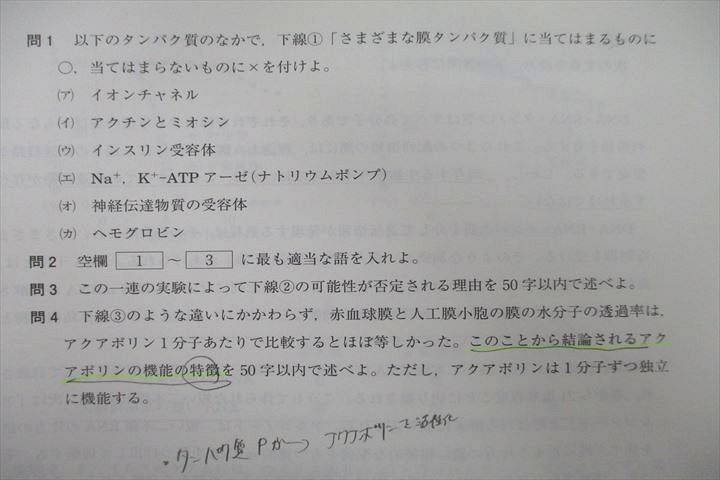 問1 以下のタンパク質のなかで，下線①「さまざまな膜タンパク質」に当てはまるものに
○，当てはまらないものに×を付けよ。
(ア) イオンチャネル
(イ) アクチンとミオシン
(ウ) インスリン受容体
(エ) Na⁺，K⁺-ATPアーゼ(ナトリウムポンプ)
(オ) 神経伝達物質の受容体
(カ) ヘモグロビン
問2 空欄 1 ～ 3 に最も適当な語を入れよ。
問3 この一連の実験によって下線②の可能性が否定される理由を50字以内で述べよ。
問4 下線③のような違いにかかわらず，赤血球膜と人工膜小胞の膜の水分子の透過率は，
アクアポリン1分子あたりで比較するとほぼ等しかった。このことから結論されるアク
アポリンの機能の特徴を50字以内で述べよ。ただし，アクアポリンは1分子ずつ独立
に機能する。
。タンパク質Pが→アクアポリンを活性化